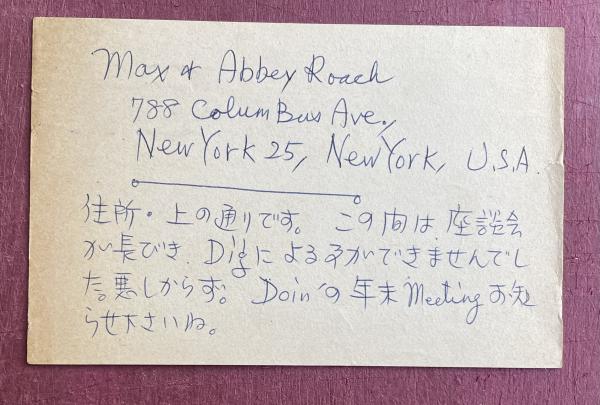 Max & Abbey Roach
788 Columbus Ave.,
New York 25, New York, U.S.A.
住所・上の通りです。 この間は、座談会
が長びき、Digによる事ができませんでし
た。悪しからず。 Doin'の年末Meetingお知
らせ下さいね。